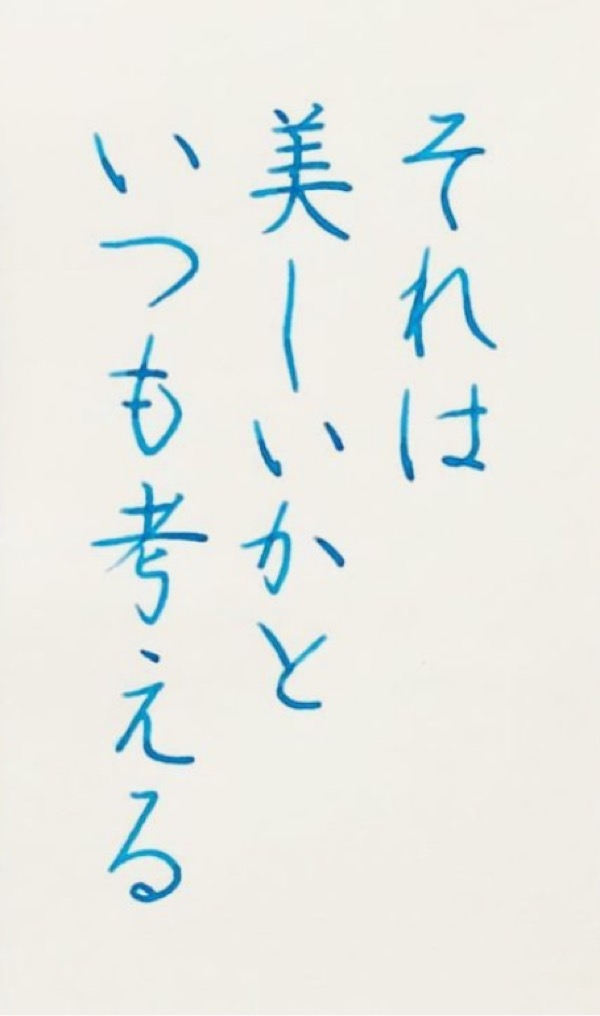 それは
美しいかと
いつも考える